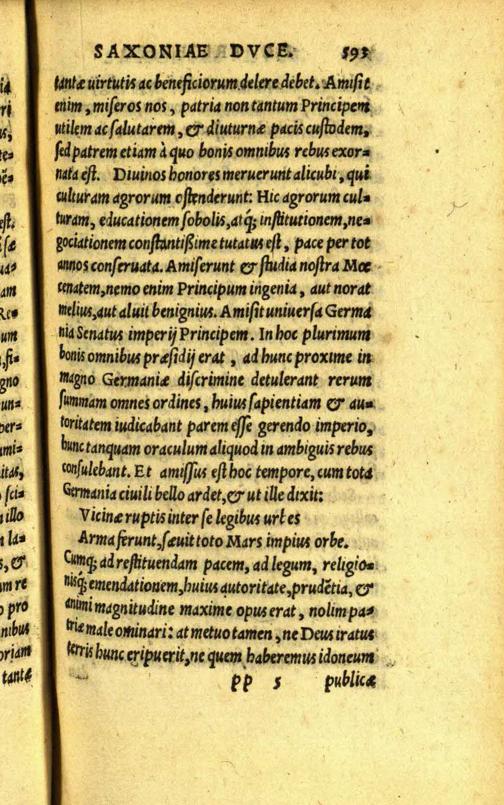 SAXONIAE DVCE. 593
tantæ uirtutis ac beneficiorum delere debet. Amisit
enim, miseros nos, patria non tantum Principem
utilem ac salutarem, & diuturnæ pacis custodem,
sed patrem etiam à quo bonis omnibus rebus exor=
nata est. Diuinos honores meruerunt alicubi, qui
culturam agrorum ostenderunt: Hic agrorum cul=
turam, educationem sobolis, atq; institutionem, ne=
gociationem constantißime tutatus est, pace per tot
annos conseruata. Amiserunt & studia nostra Moe
cenatem, nemo enim Principum ingenia, aut norat
melius, aut aluit benignius. Amisit uniuersa Germa
nia Senatus imperij Principem. In hoc plurimum
bonis omnibus præsidij erat, ad hunc proxime in
magno Germaniæ discrimine detulerant rerum
summam omnes ordines, huius sapientiam & au=
toritatem iudicabant parem esse gerendo imperio,
hunc tanquam oraculum aliquod in ambiguis rebus
consulebant. Et amissus est hoc tempore, cum tota
Germania ciuili bello ardet, & ut ille dixit:
Vicinæ ruptis inter se legibus urbes
Arma ferunt, sæuit toto Mars impius orbe.
Cumq; ad restituendam pacem, ad legum, religio=
nisq; emendationem, huius autoritate, prudẽtia, &
animi magnitudine maxime opus erat, nolim pa=
triæ male ominari: at metuo tamen, ne Deus iratus
terris hunc eripuerit, ne quem haberemus idoneum
pp 5 publicæ